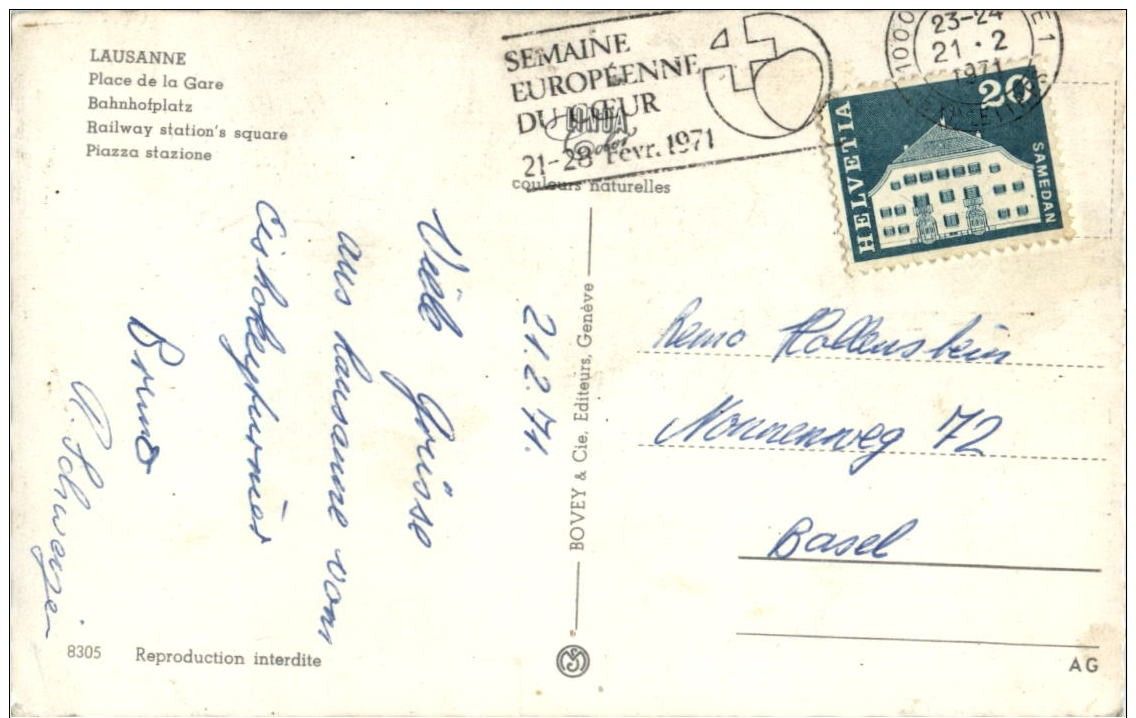 LAUSANNE
Place de la Gare
Bahnhofplatz
Railway station's square
Piazza stazione
SEMAINE
EUROPÉENNE
DU CŒUR
21-28 Févr. 1971
couleurs naturelles
23-24
21·2
1971
20
HELVETIA
SAMEDAN
21.2.71.
Viele Grüsse
aus Lausanne vom
Eishokeyturnier
Bruno
BOVEY & Cie, Editeurs, Genève
Remo Hollenstein
Nonnenweg 72
Basel
8305 Reproduction interdite
AG